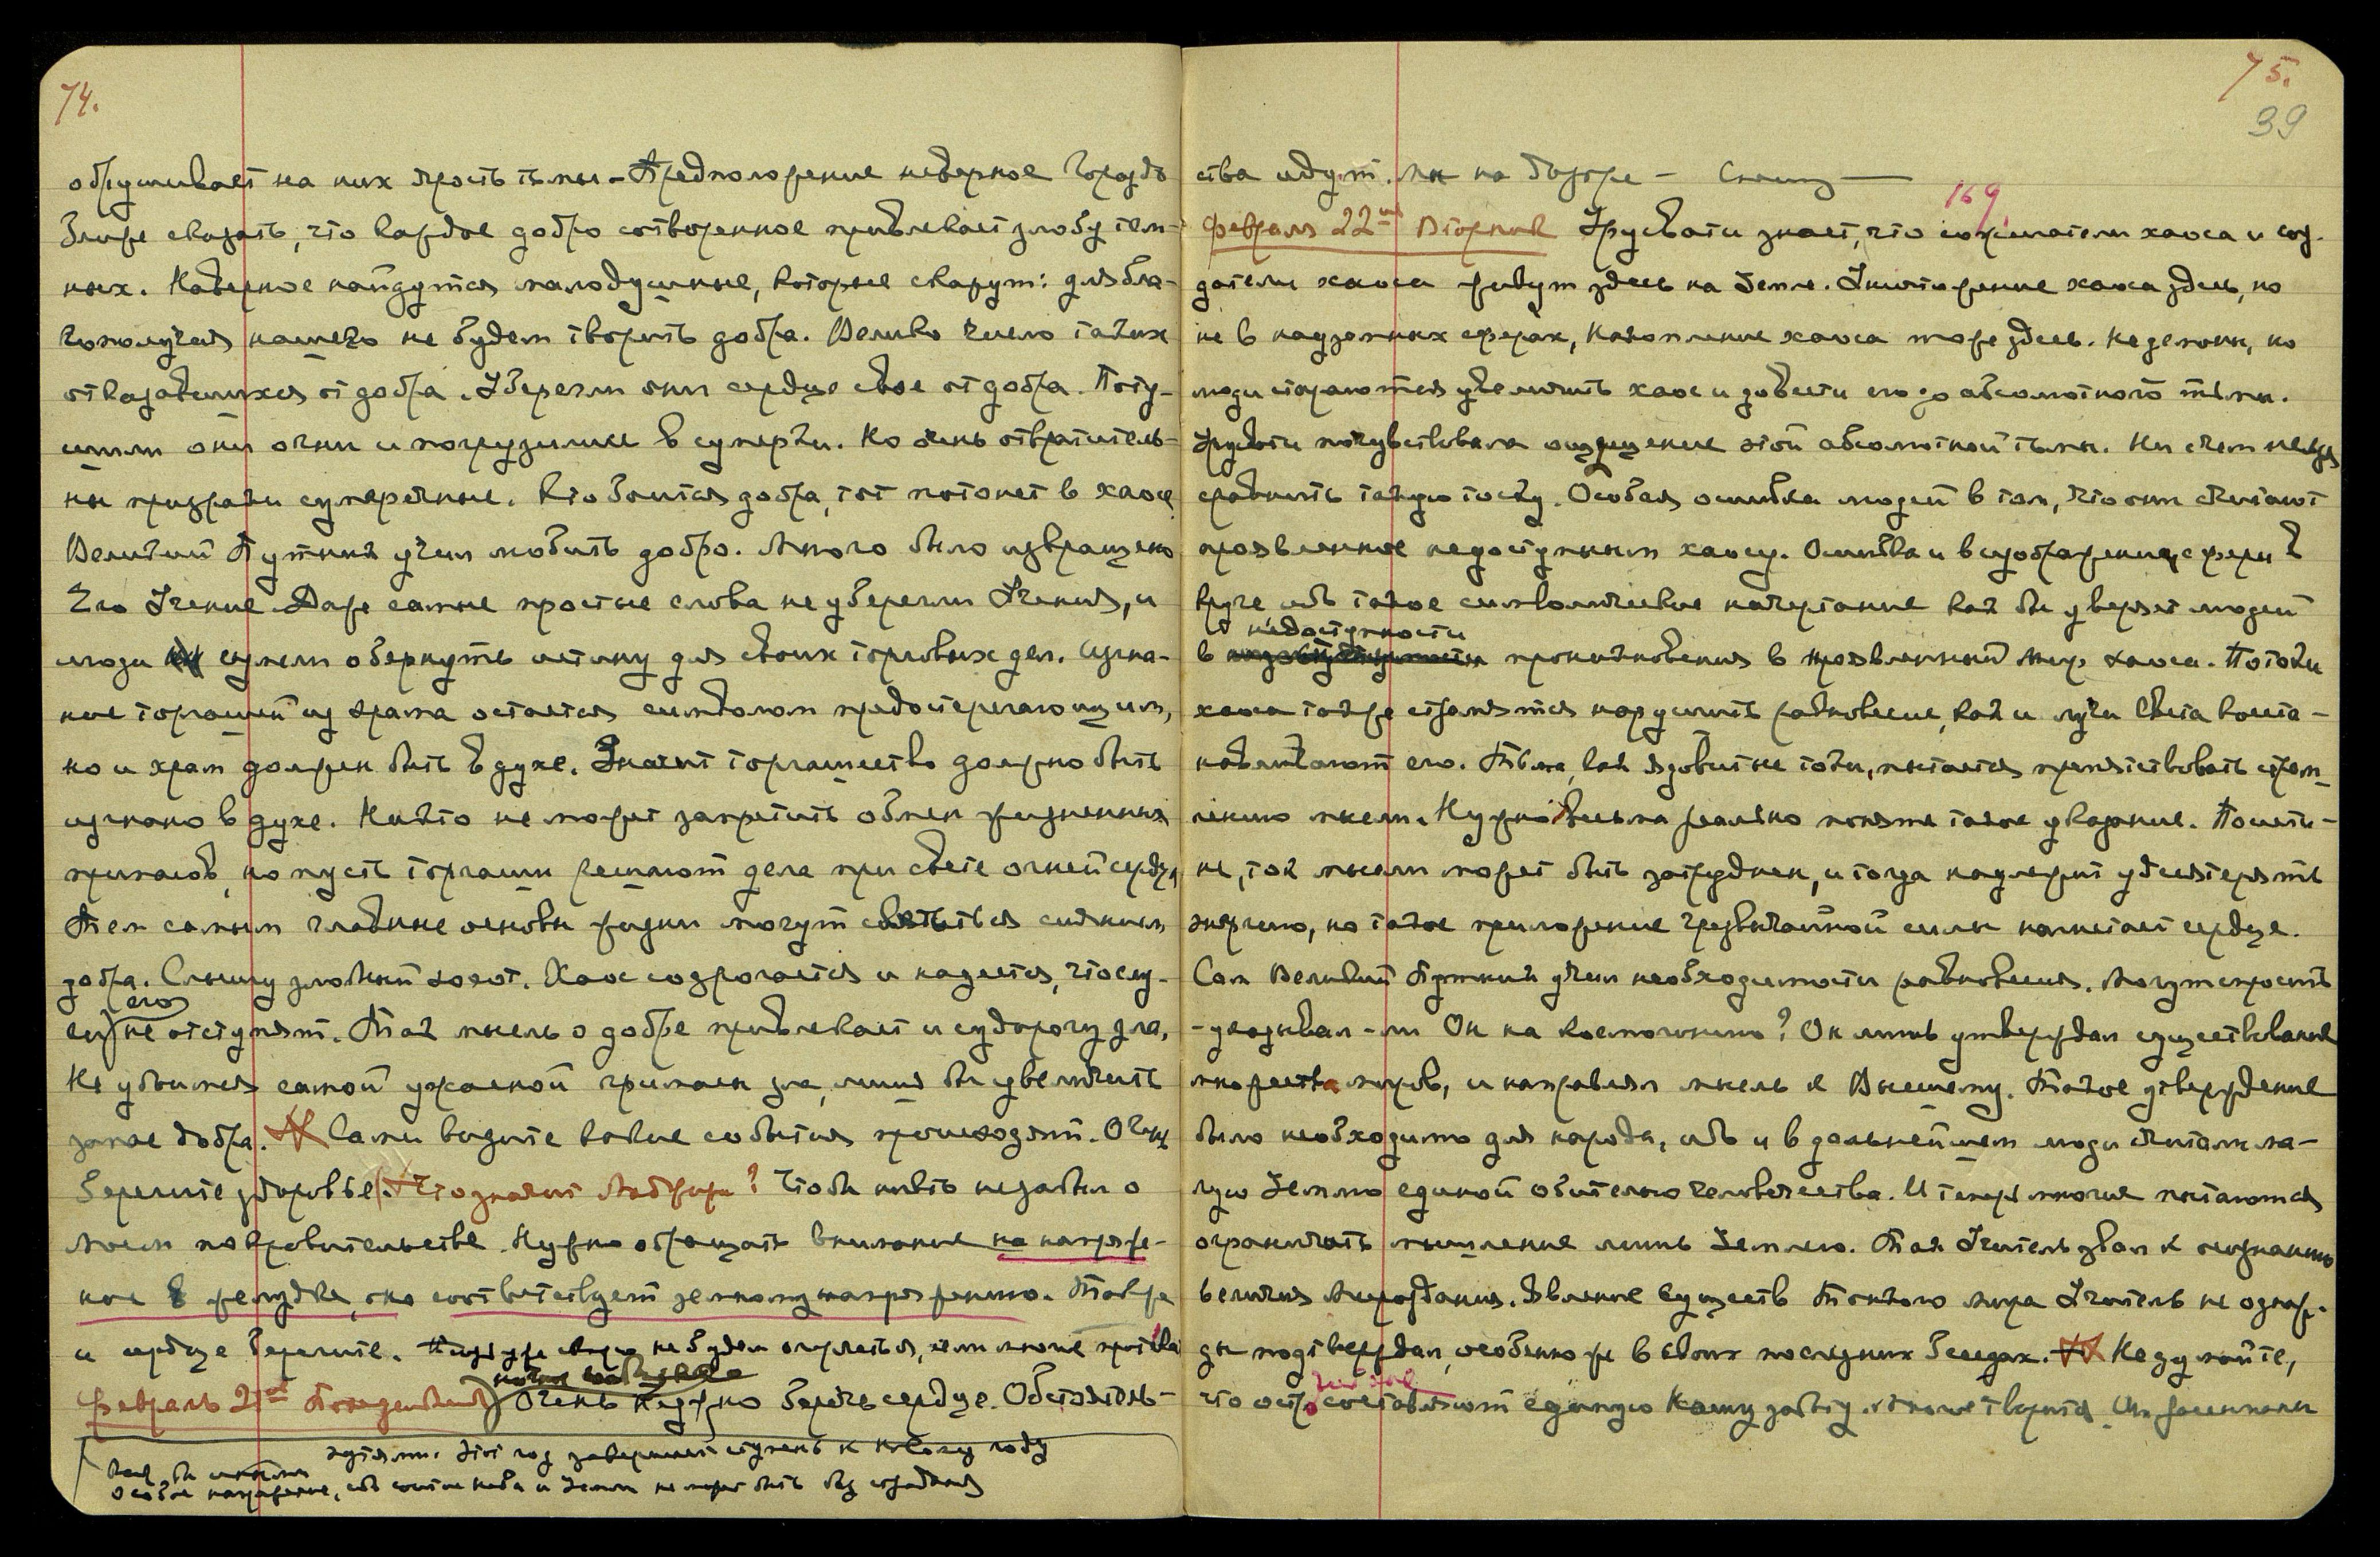 74.
обрушивает на них ярость тьмы – Предположение неверное гораздо
ближе сказать, что каждое добро сотворенное привлекает злобу тем-
ных. Наверное найдутся малодушные, которые скажут: для бла-
гополучия нашего не будем творить добра. Велико число таких
отказавшихся от добра. Уберегли они сердце свое от добра. Поту-
шили они огни и погрузились в сумерки. Но очень отвратитель-
ны призраки сумеречные. Кто боится добра, тот потонет в хаосе
Великий Путник учил любить добро. Много было извращено
Его Учение. Даже самые простые слова не уберегли Учения, и
люди сумели обернуть истину для своих торговых дел. Изгна-
ние торгашей из храма остается символом предостерегающим,
но и храм должен быть в духе. Значит торгашество должно быть
изгнано в духе. Никто не может запретить обмен жизненных
припасов, но пусть торгаши решают дела при свете огней сердца
Тем самым главные основы жизни могут светиться сиянием
добра. Слышу злобный хохот. Хаос содрогается и надеется, что слу-
его
не отступят. Так мысль о добре привлекает и судорогу зла,
Не убоимся самой ужасной гримасы зла, лишь бы увеличить
запас добра. Сами видите какие события происходят. Очень
берегите здоровье. Что значит ? Чтобы никто не забыл о
Моем покровительстве. Нужно обращать внимание на напряже-
ние в желудке, оно соответствует земному напряжению. Также
и сердце берегите.
Февраль 21ое Понедельник Очень нужно беречь сердце. Обстоятель-
Этот год завершает ступень к новому году
Особое напряжение, ибо неба и Земли не может быть без
75.
39
ства идут. не на базаре –
169.
Февраль 22ое Вторник Урусвати знает, что сожигатели хаоса и соз-
датели хаоса живут здесь на Земле. Уничтожение хаоса здесь, но
не в надземных сферах, Накопление хаоса тоже здесь. Не демоны, но
люди стараются увеличить хаос и довести его до абсолютной тьмы.
Урусвати почувствовала ощущение этой абсолютной тьмы. Ни с чем нельзя
сравнить такую тоску. Особая ошибка людей в том, что они считают
проявленное недоступным хаосу. Ошибка и в изображении сферы в
круге ибо такое символическое начертание как бы уверяет людей
недоступности
в проникновения в проявленный мир хаоса. Потоки
хаоса также стремятся нарушить равновесие, как и лучи Света восста-
навливают его. Тьма, как ядовитые токи, пытается препятствовать стрем-
лению мысли. Нужно весьма реально понять такое указание. Поисти-
не, ток мысли может быть затруднен, и тогда надлежит удесятерять
энергию, но такое приложение чрезвычайной силы нагнетает сердце.
Сам Великий Путник учил необходимости равновесия. Могут спросить
– указывал-ли Он на Космогонию? Он лишь утверждал существование
множества миров, и направлял мысль к Высшему. Такое утверждение
было необходимо для народа, ибо и в дальнейшем люди считали ма-
лую Землю единой обителью человечества. И теперь многие пытаются
ограничить мышление лишь Землею. Так Учитель звал к осознанию
величия Мироздания. Явление существ Тонкого мира Учитель не однаж-
ды подтверждал, особенно же в своих последних беседах. Не думайте,
что составляют единую Нашу заботу.